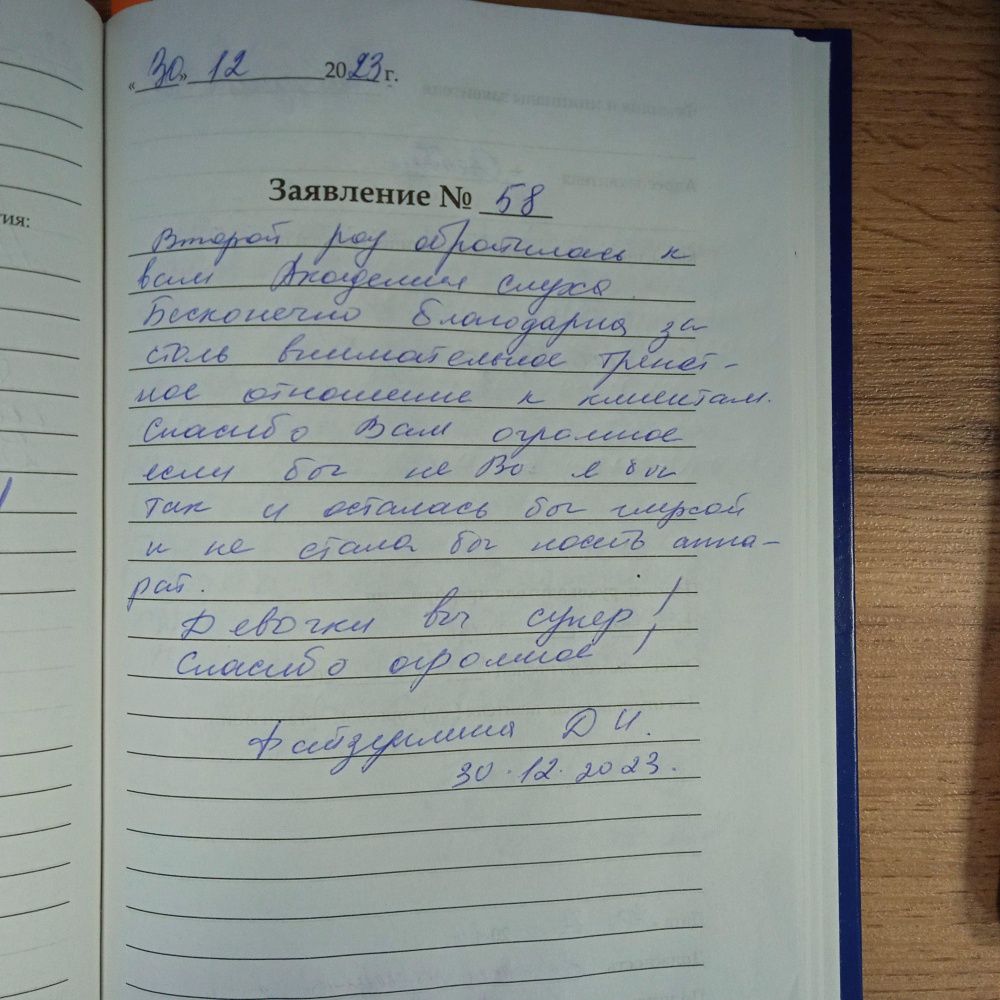 «30» 12 2023 г.
Заявление № 58
Второй раз обратилась к
вам Академия слуха
Бесконечно благодарна за
столь внимательное трепет-
ное отношение к клиентам.
Спасибо Вам огромное
если бы не Вы я бы
так и осталась бы глухой
и не стала бы носить аппа-
рат.
Девочки вы супер!
Спасибо огромное!
Файзуллина Д И.
30.12.2023.
тия: